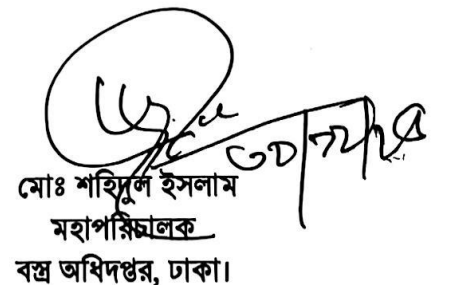 মোঃ শহিদুল ইসলাম
মহাপরিচালক
বস্ত্র অধিদপ্তর, ঢাকা।